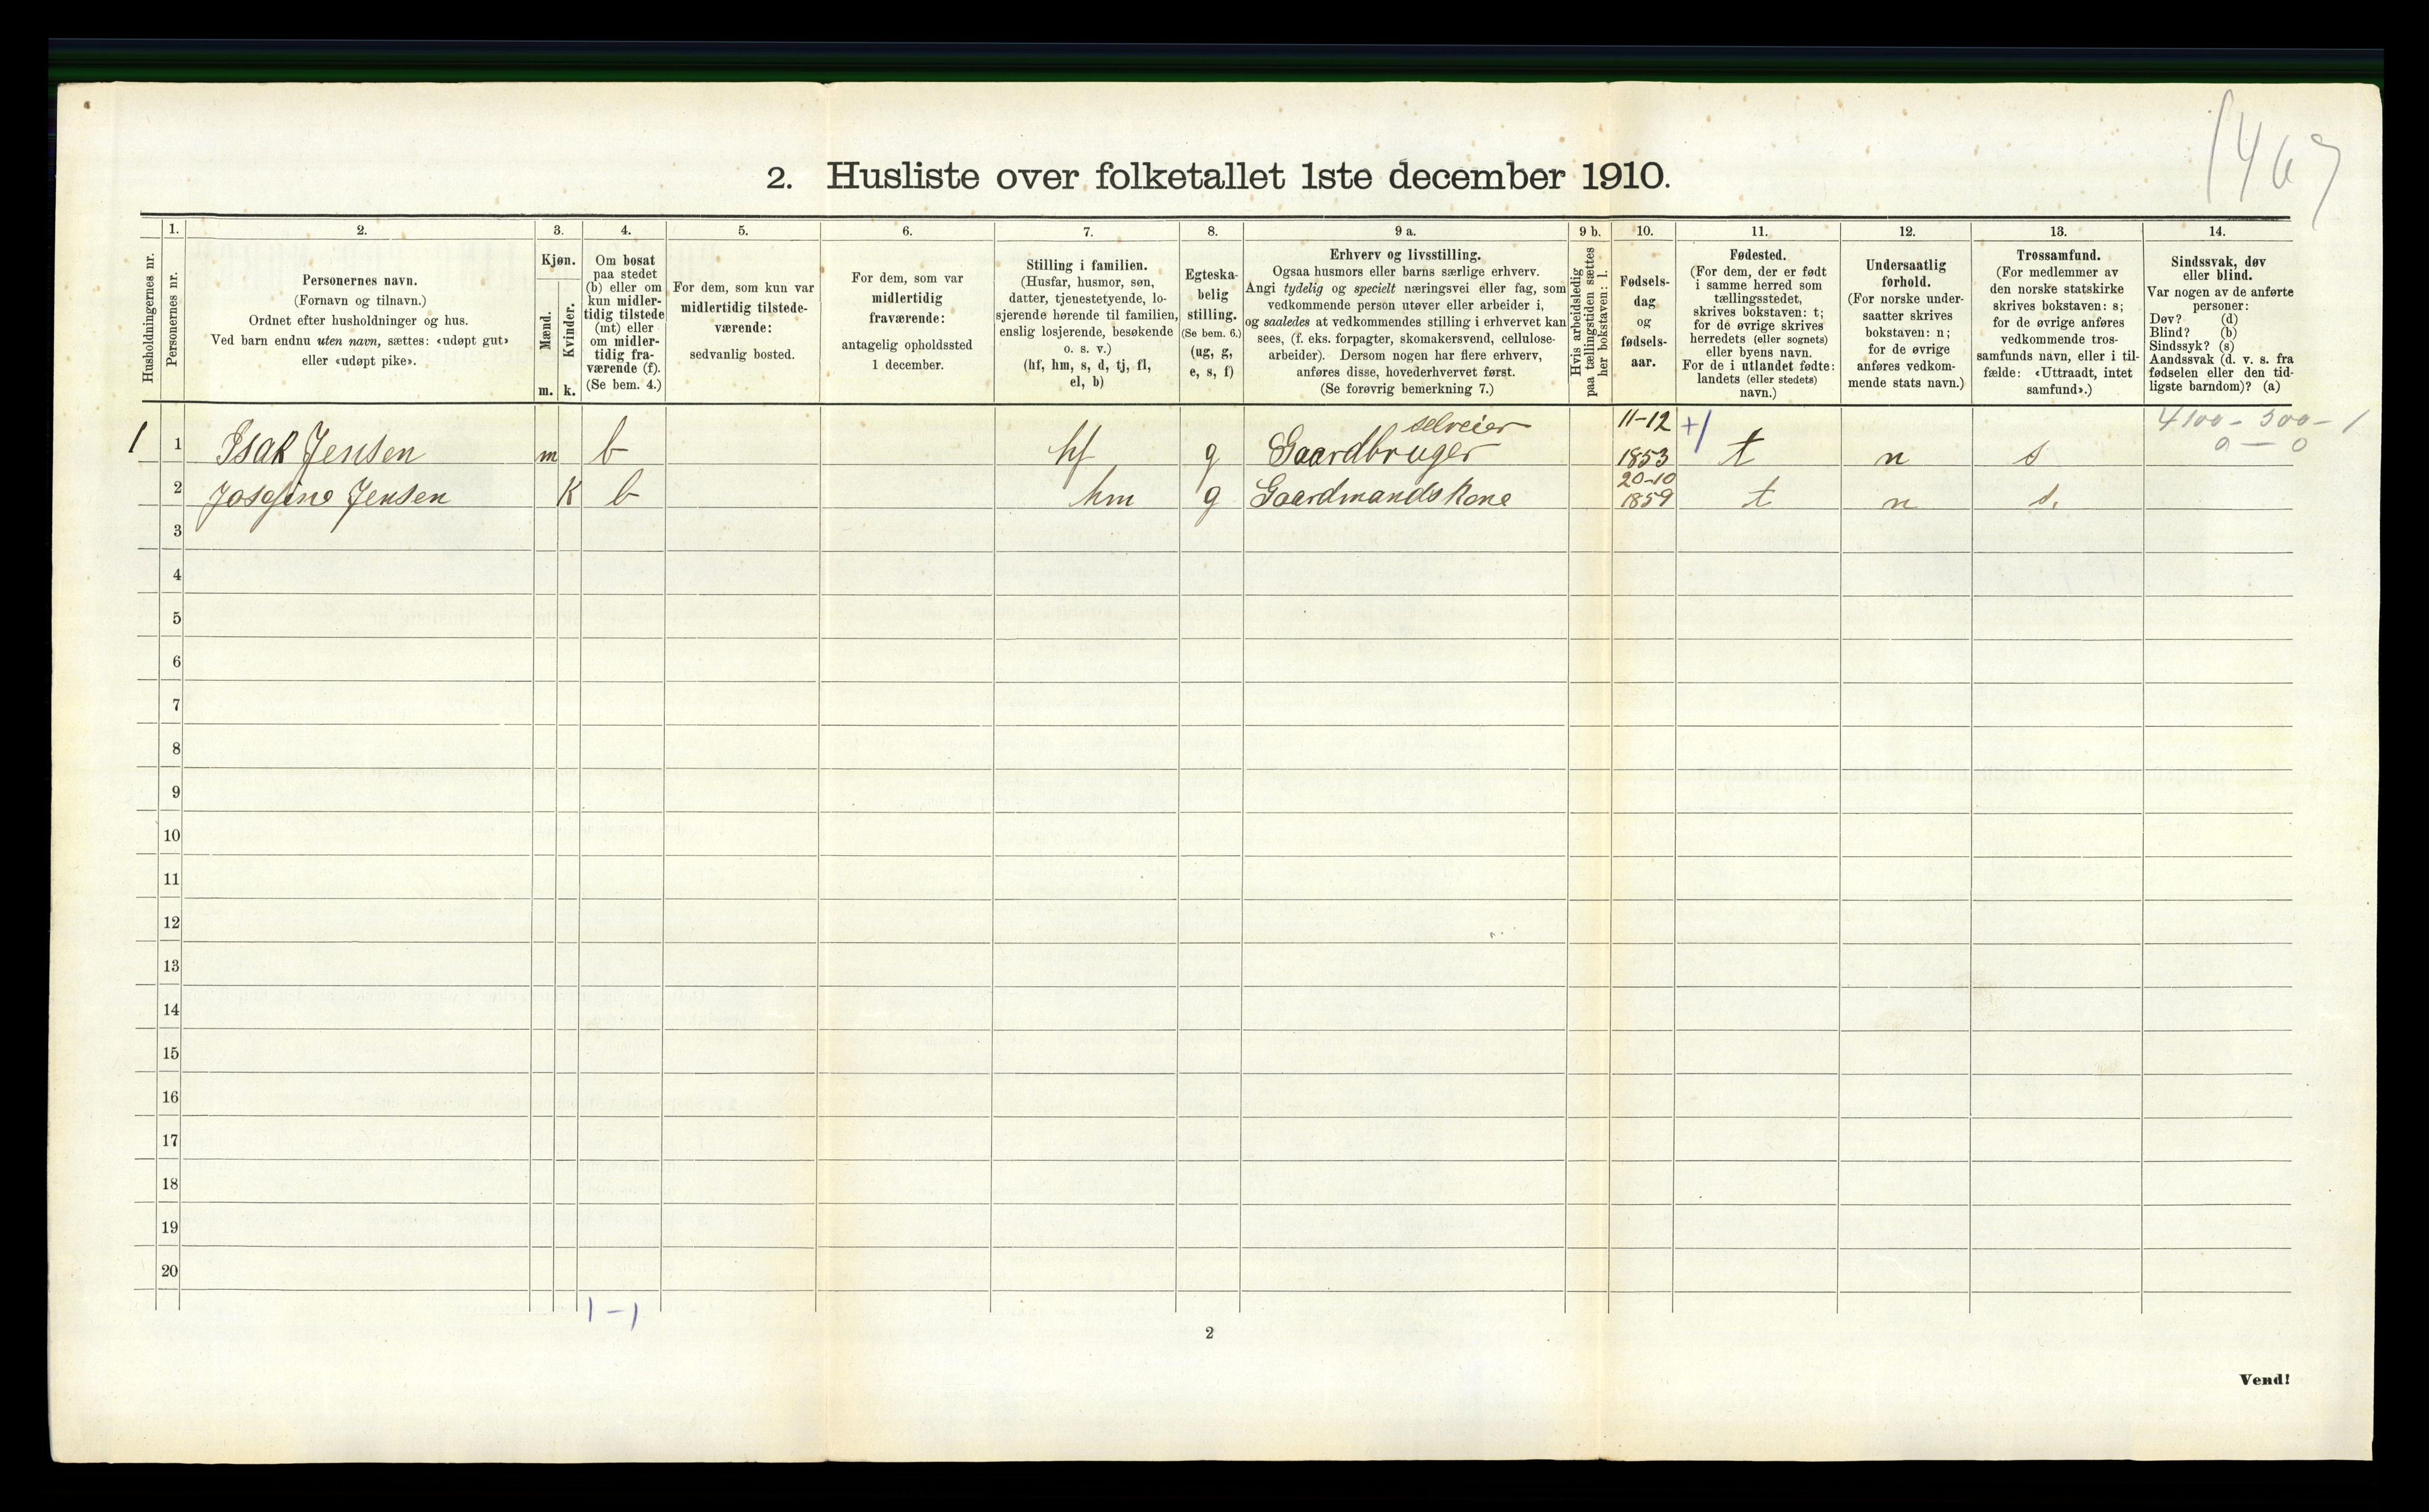 1467
2. Husliste over folketallet 1ste december 1910.
Husholdningernes nr.
1.
Personernes nr.
2.
Personernes navn.
(Fornavn og tilnavn.)
Ordnet efter husholdninger og hus.
Ved barn endnu uten navn, sættes: «udøpt gut»
eller «udøpt pike».
3.
Kjøn.
Mænd.
m.
Kvinder.
k.
4.
Om bosat
paa stedet
(b) eller om
kun midler-
tidig tilstede
(mt) eller
om midler-
tidig fra-
værende (f).
(Se bem. 4.)
5.
For dem, som kun var
midlertidig tilstede-
værende:
sedvanlig bosted.
6.
For dem, som var
midlertidig
fraværende:
antagelig opholdssted
1 december.
7.
Stilling i familien.
(Husfar, husmor, søn,
datter, tjenestetyende, lo-
sjerende hørende til familien,
enslig losjerende, besøkende
o. s. v.)
(hf, hm, s, d, tj, fl,
el, b)
8.
Egteska-
belig
stilling.
(Se bem. 6.)
(ug, g,
e, s, f)
9 a.
Erhverv og livsstilling.
Ogsaa husmors eller barns særlige erhverv.
Angi tydelig og specielt næringsvei eller fag, som
vedkommende person utøver eller arbeider i,
og saaledes at vedkommendes stilling i erhvervet kan
sees, (f. eks. forpagter, skomakersvend, cellulose-
arbeider). Dersom nogen har flere erhverv,
anføres disse, hovederhvervet først.
(Se forøvrig bemerkning 7.)
9 b.
Hvis arbeidsledig
paa tællingstiden sættes
her bokstaven: l.
10.
Fødsels-
dag
og
fødsels-
aar.
11.
Fødested.
(For dem, der er født
i samme herred som
tællingsstedet,
skrives bokstaven: t;
for de øvrige skrives
herredets (eller sognets)
eller byens navn.
For de i utlandet fødte:
landets (eller stedets)
navn.)
12.
Undersaatlig
forhold.
(For norske under-
saatter skrives
bokstaven: n;
for de øvrige
anføres vedkom-
mende stats navn.)
13.
Trossamfund.
(For medlemmer av
den norske statskirke
skrives bokstaven: s;
for de øvrige anføres
vedkommende tros-
samfunds navn, eller i til-
fælde: «Uttraadt, intet
samfund».)
14.
Sindssvak, døv
eller blind.
Var nogen av de anførte
personer:
Døv? (d)
Blind? (b)
Sindssyk? (s)
Aandssvak (d. v. s. fra
fødselen eller den tid-
ligste barndom)? (a)
selveier 11-12 +1 4100 - 300 - 1
1 1 Isak Jensen m b hf g Gaardbruger 1853 t n s 0 - 0
20-10
2 Josefine Jensen K b hm g Gaardmands Kone 1859 t n s.
3
4
5
6
7
8
9
10
11
12
13
14
15
16
17
18
19
20
1 - 1
2
Vend!